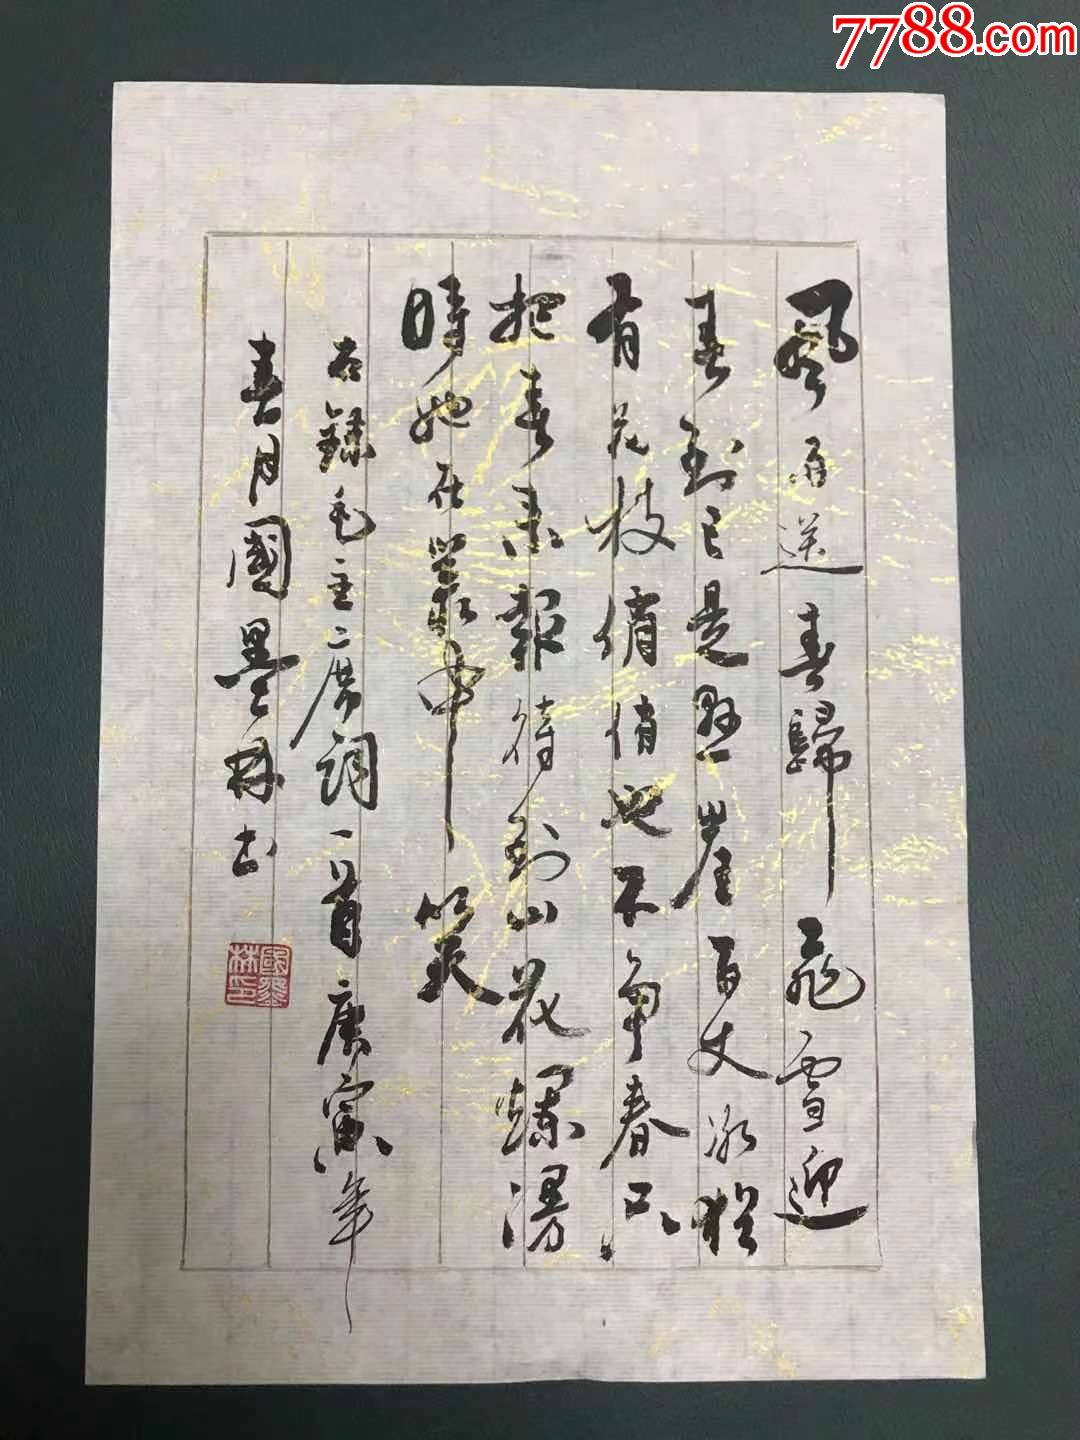 7788.com
風雨送春歸飛雪迎
春到已是悬崖百丈冰猶
有花枝俏俏也不争春只
把春来報待到山花爛漫
時她在叢中笑
右録毛主席詞一首庚寅年
春月國墨林书
國墨林印